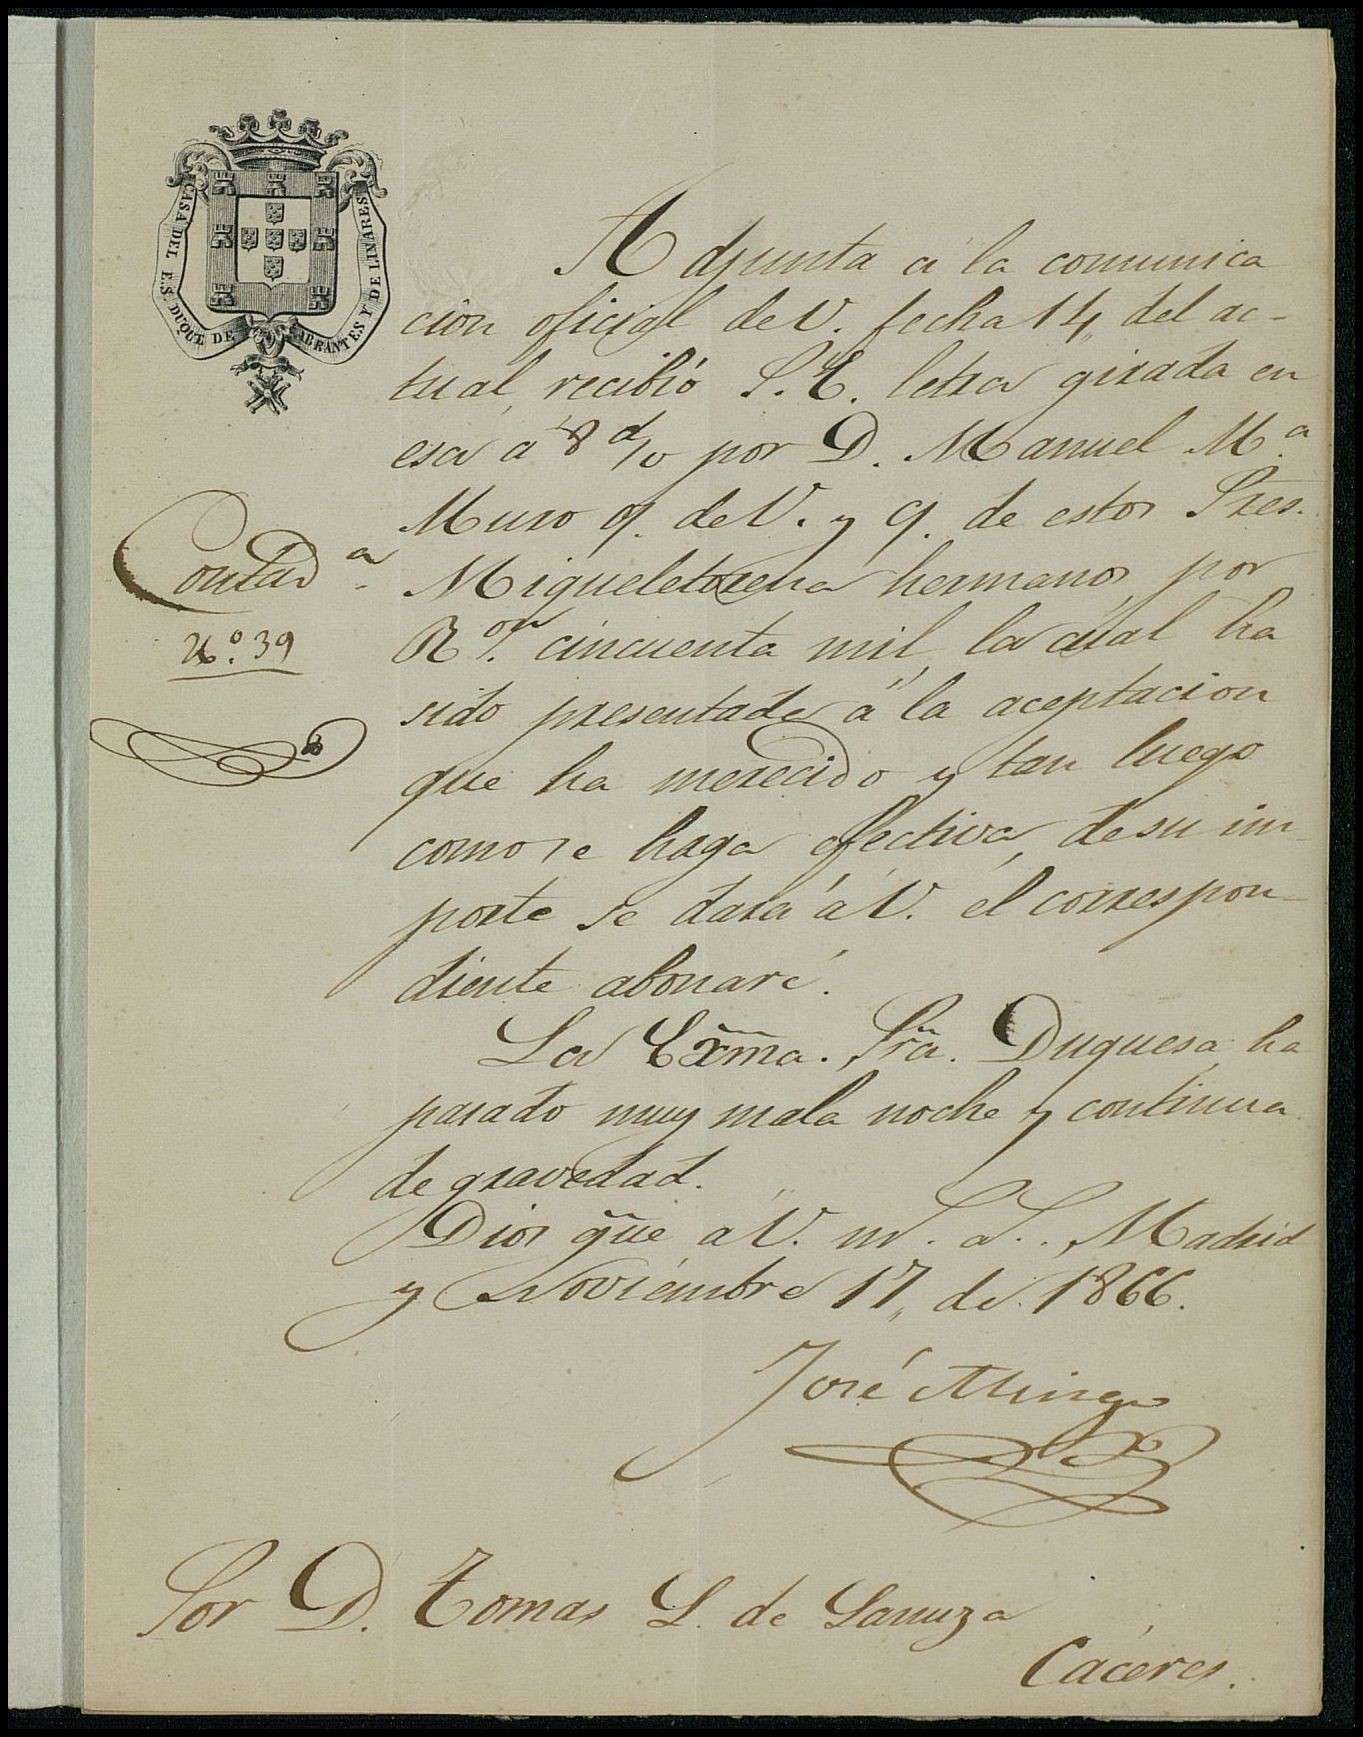 CASA DEL E.S. DUQUE DE ABRANTES Y DE LINARES
Contad.ª
N.º 39
Adjunta á la comunica
cion oficial de V. fecha 14, del ac-
tual, recibió S.E. letra girada en
esa á 8 d/v por D. Manuel M.ª
Muro o/. de V. y c/. de estos Sres.
Migueletorena hermanos, por
R.on cincuenta mil, la cual ha
sido presentada á la aceptacion
que ha merecido y tan luego
como se haga efectiva, de su im-
porte se dará á V. el correspon-
diente abonaré.
La Exm̃a. Sr̃a. Duquesa, ha
pasado muy mala noche y continua
de gravedad.
Dios gũe a V. m. a. Madrid
y Noviembre 17, de 1866.
José Mingo
Sor D. Tomas L. de Sanuza
Cáceres.